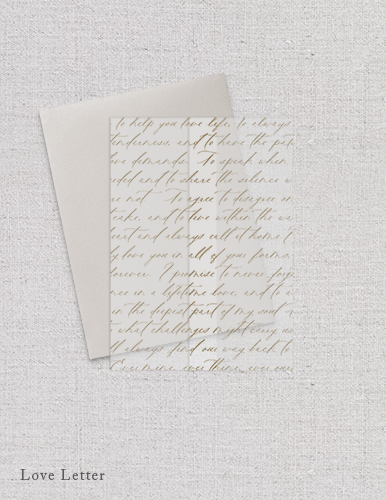 to help you love life, to always
tenderness and to have the pat
love demands. To speak when
eded and to share the silence w
re not. To agree to disagree on
cake, and to live within the wa
eart and always call it home. I
ly love you in all of your forms,
forever. I promise to never forg
nce in a lifetime love, and to a
in the deepest part of my soul
what challenges might carry us
ll always find our way back to
Love Letter